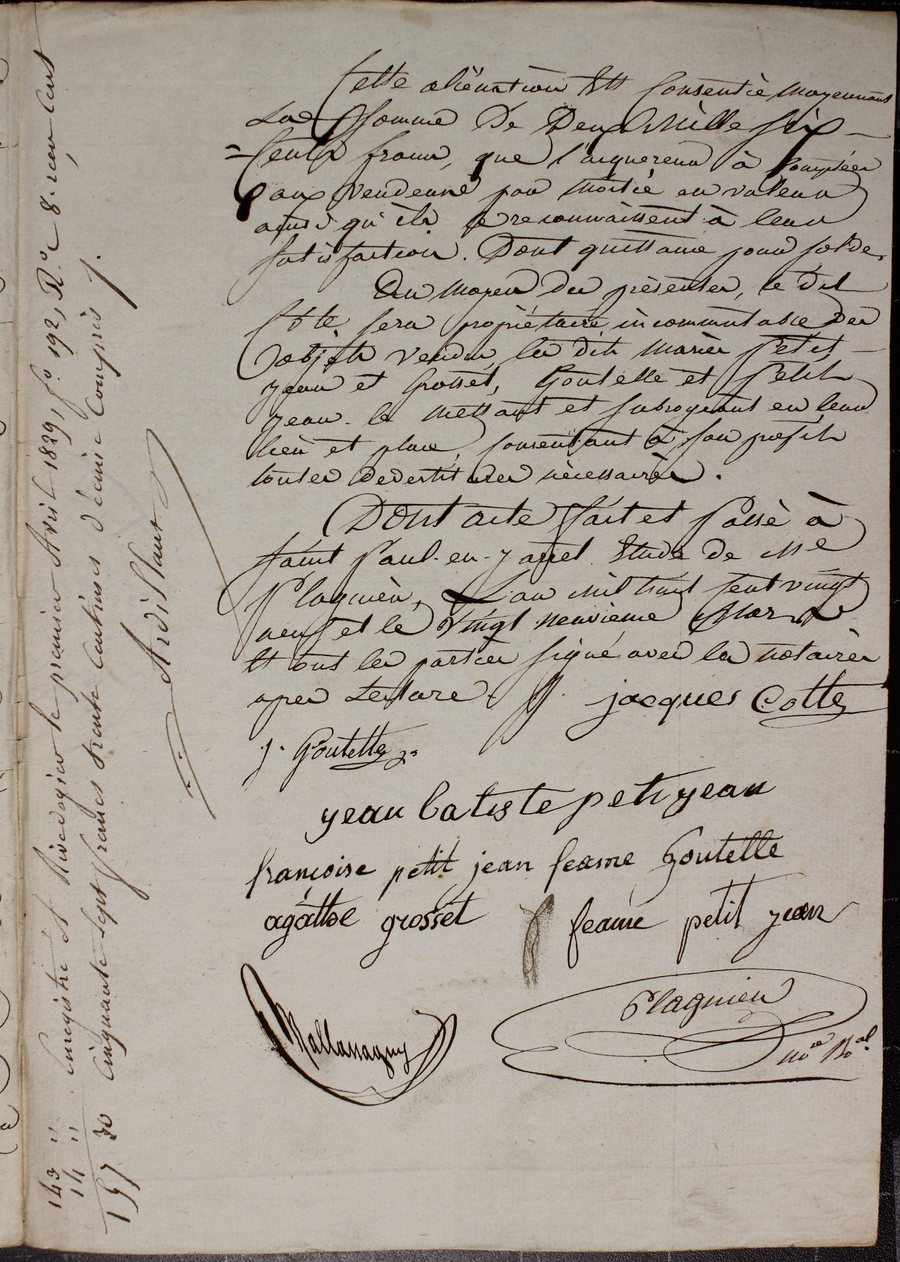 Cette aliénation Est Consentie Moyennant
La Somme De Deux Mille Six
Cents francs, que l'acquereur à Comptée
aux Vendeurs par Moitié en valeur
ainsi qu'ils le reconnaissent à leur
satisfaction. Dont quittance pour solde.
Au Moyen des présentes, le dit
Cotte sera propriétaire incommutable Des
objets vendus les dits Mariés Petit
jean et Grosset, Goutelle et Petit
jean le Mettant et subrogeant en leur
lieu et place, consentant à son profit
toutes necessaires.
Dont acte fait et Passé à
Saint Paul-en-Jarret Etude de Me
Plagnieu, L'an Mil huit Cent vingt
neuf et le Vingt neuvieme Mars
Et ont les parties signé avec les notaires
apres Lecture. jacques Cotte
j. Goutelle
jean batiste petitjean
françoise petit jean feame Goutelle
agathe grosset feame petit jean
Plagnieu
Nore Ral
Enregistré à St Rivedegier le premier Avril 1829, fo 192, Ro Ce 8. reçu cent
Cinquante sept francs trente centimes décime Compris
143 "
14 "
157 30